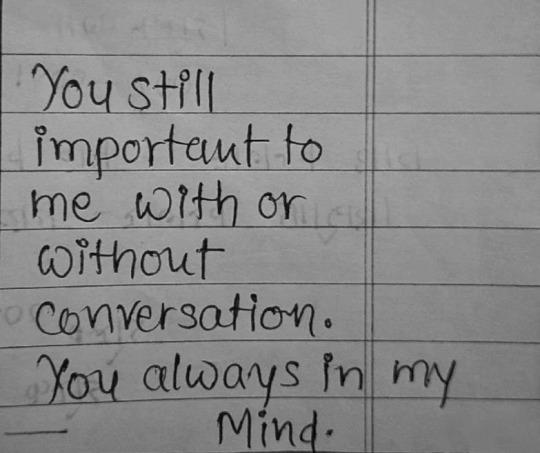 You still
important to
me with or
without
conversation.
You always in my
Mind.